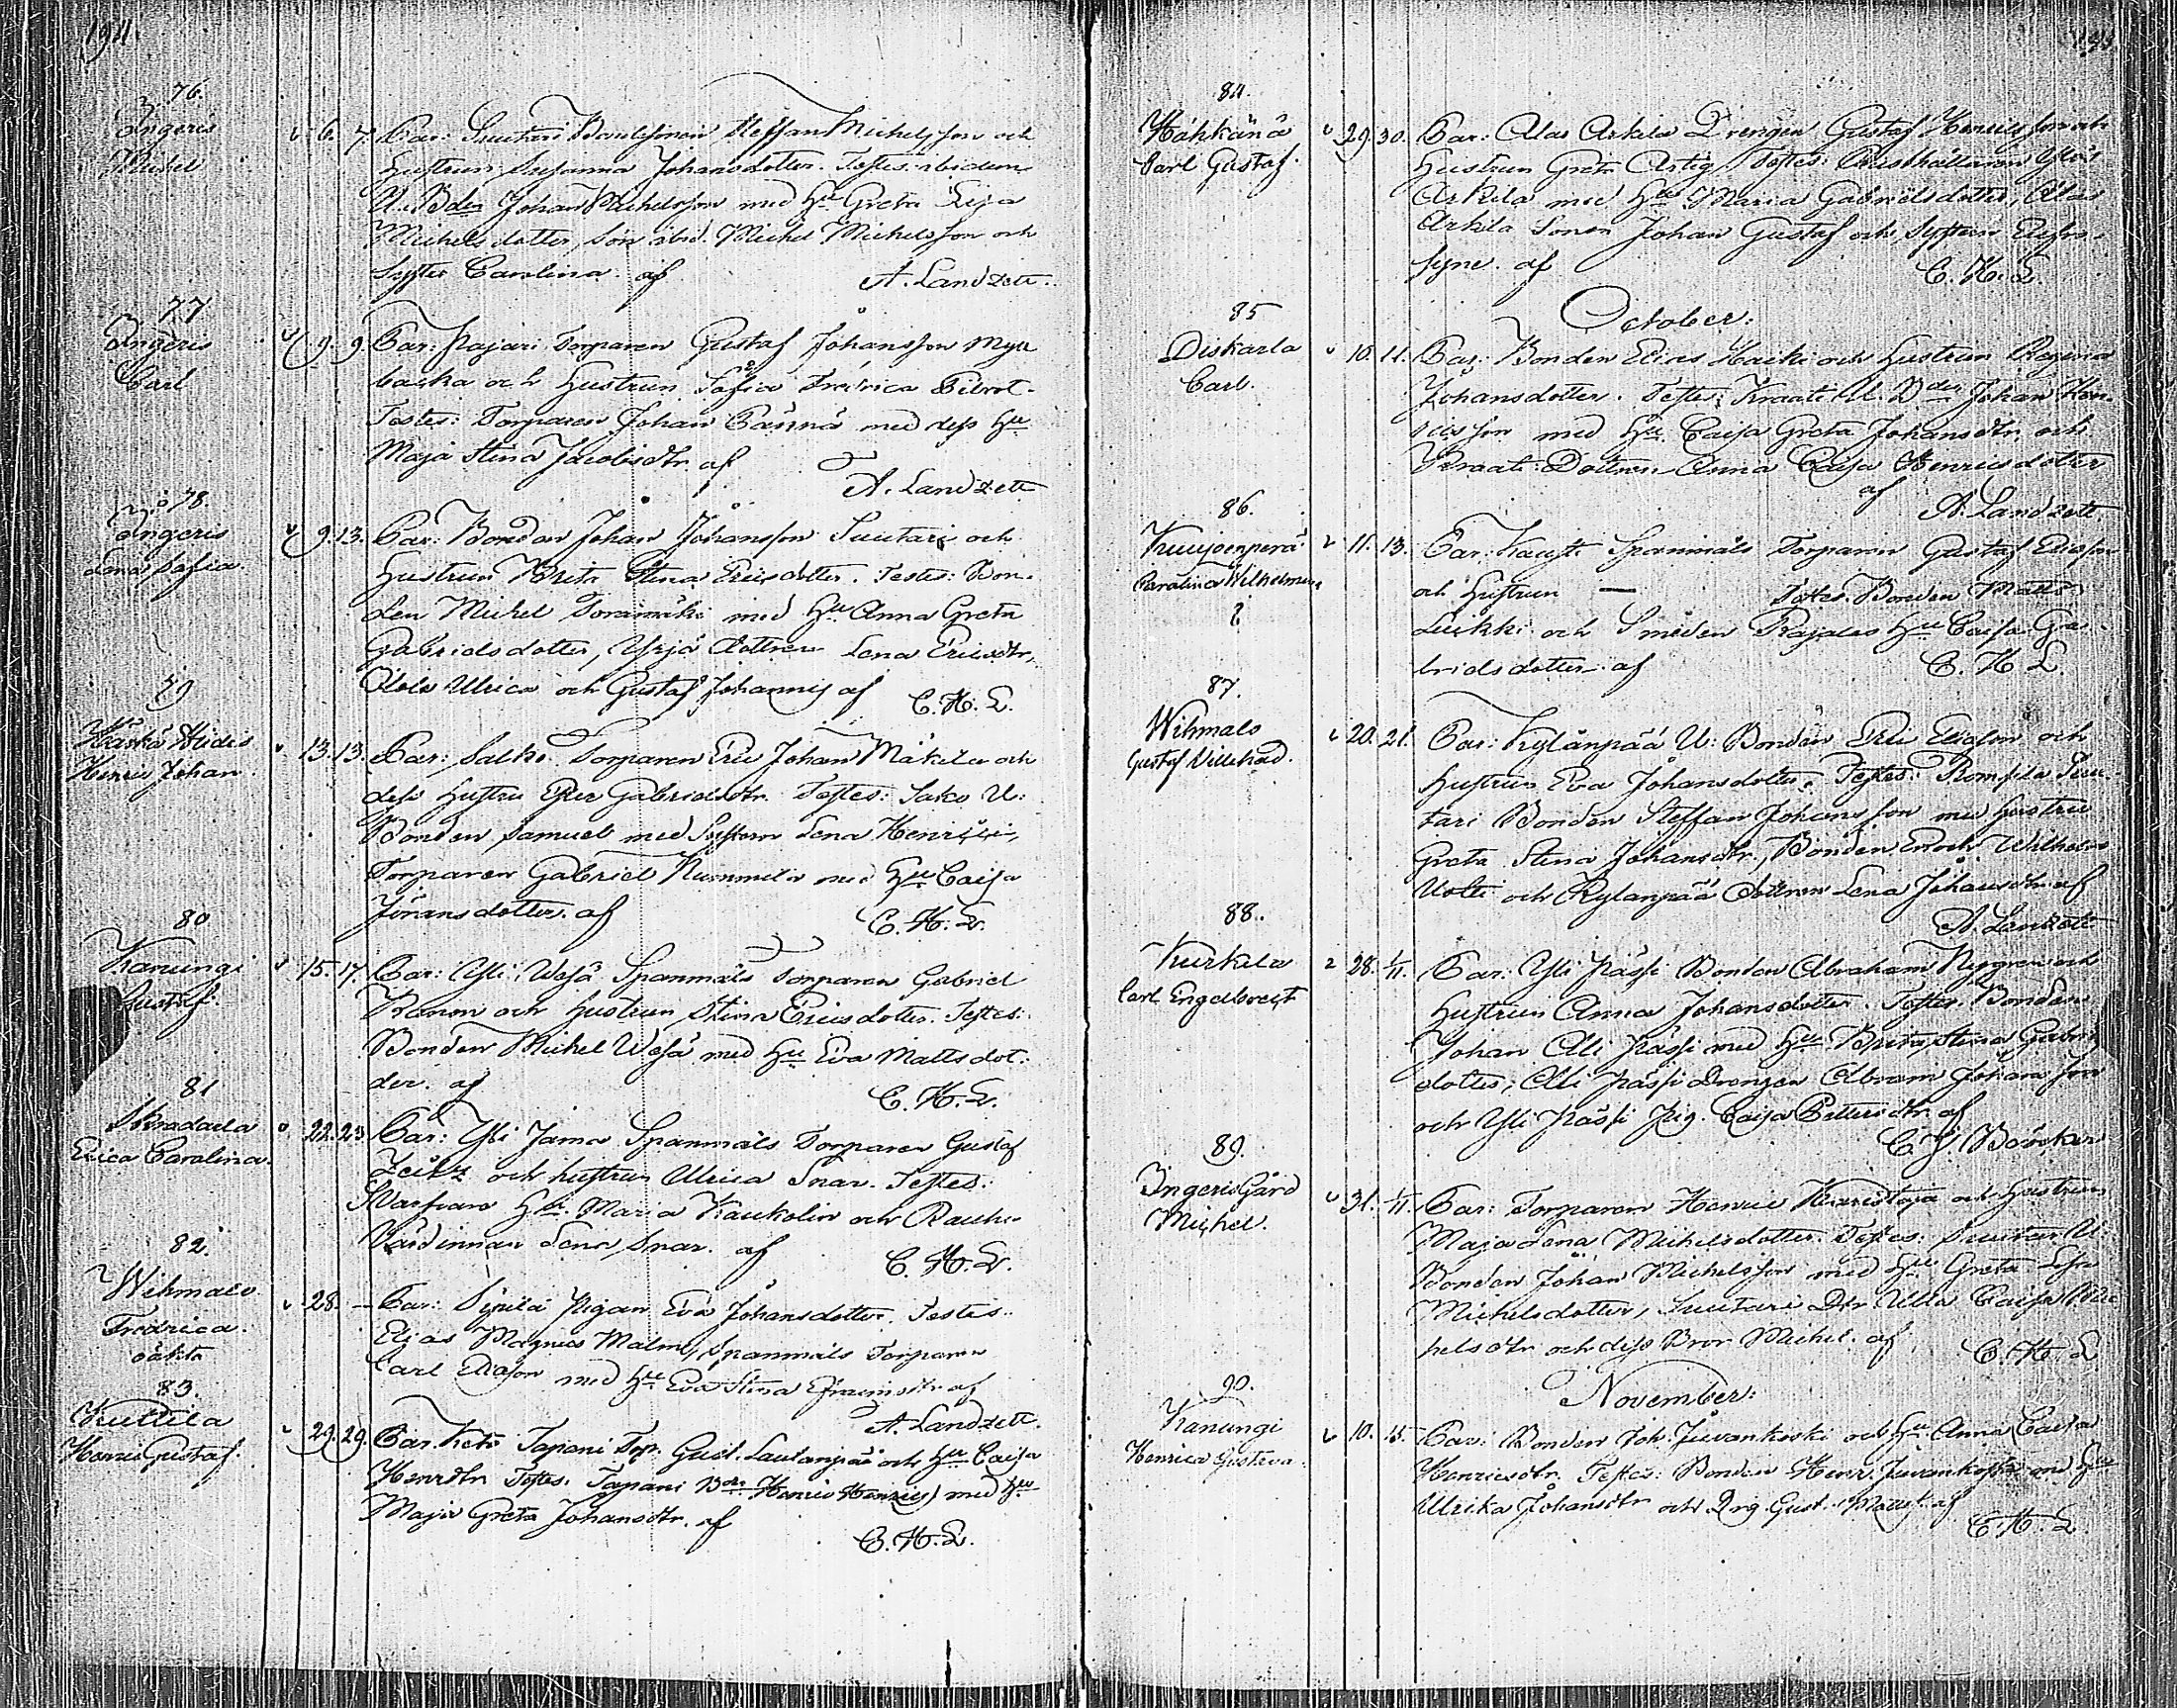 194
76.
Ingeris
Michel
6. 7. Par: Suutari Bondesonen Steffan Michelsson och
Hustrun Susanna Johansdotter. Testes: ibidem
U. Bden Johan Michelsson med Hu Greta Lisa
Michelsdotter, Son ibid. Michel Michelsson och
Syster Carolina. af A. Landzett.
77
Ingeris
Carl
9. 9. Par: Pajari Torparen Gustaf Johansson Myll
backa och Hustrun Sofia Fredrica
Testes: Torparen Johan Pännä med dess Hu
Maja Stina Jacobsdtr. af
A. Landzett
78.
Ingeris
Lena Sofia
9. 13. Par: Bonden Johan Johansson Suutari och
Hustrun Brita Stina Ericsdotter. Testes: Bon-
den Michel Toramäki med Hu Anna Greta
Gabrielsdotter, Yrjä Dottren Lena Ericsdtr,
Ulrica och Gustaf Johannis af C. H. L.
79
Härkä Alidis
Henric Johan
13. 13. Par: Salko Torparen Eric Johan Mäkila och
dess Hustru Gabrielsdtr. Testes: Sako U:
Bonden Samuel med Systern Lena Henrici,
Torparen Gabriel Nummila med Hu Caisa
Jöransdotter. af C. H. L.
80
Kanungi
Gustaf.
15. 17. Par: Yli Wesä Spanmåls Torparen Gabriel
Kranon och Hustrun Stina Ericsdotter. Testes:
Bonden Michel Wesä med Hu Eva Mattsdot-
der. af C. H. L.
81
Skradarla
Erica Carolina.
22. 23 Par: Yli Jama Spanmåls Torparen Gustaf
och hustrun Ulrica Snar. Testes:
Hu. Maria Kaukolin och
Värdinnan Lena Snar. af C. H. L.
82.
Wihmalo
Fredrica.
oäkta
28. — Par: Sipilä Pigan Eva Johansdotter. Testes:
Elias Magnus Malm, Spanmåls Torparen
Carl med Hu Eva Stina Efraimsdtr. af
A. Landzett.
83.
Kuttila
Henric Gustaf.
29. 29. Par. Keto Tapani Torp. Gust. Lautanpää och Hu Caisa
Henrdtr Testes. Tapani Bden Henric Henrics) med Hu
Maja Greta Johansdtr. af
C. H. L.
84.
Kähkänä
Carl Gustaf.
29. 30. Par: Alas Arkila Drengen Gustaf Henricsson och
Hustrun Greta Artig. Testes: Rusthållaren Yli
Arkila med Hu Maria Gabrielsdotter, Alas
Arkila Sonen Johan Gustaf och Systern Eufro-
syne. af C. H. L.
October:
85
Diskarla
Carl.
10. 11. Par: Bonden Elias Hacki och Hustrun Regina
Johansdotter. Testes: Kraati U. Bden Johan Hen-
ricsson med Hu Caisa Greta Johansdtr. och
Kraati Dottren Anna Caisa Henricsdotter
af A. Landzett.
86.
Kuujoenperä
Carolina Wilhelmina
11. 13. Par: Spanmåls Torparen Gustaf Ericsson
och Hustrun — Testes. Bonden Matts
Luikki och Smeden Rajalas Hu Caisa Ga-
brielsdotter af C. H. L.
87.
Wihmalo
Gustaf Villehad.
20. 21. Par: Kylänpää U: Bonden Eric och
Hustrun Eva Johansdotter. Testes: Rompila Suu-
tari Bonden Steffan Johansson med hustru
Greta Stina Johansdtr., Bonden Enoch Wilhelm
Uoti och Kylänpää Dottren Lena Johansdtr. af
A. Landzett
88..
Kurkila
Carl Engelbrecht
28. 1/11. Par: Yli Pässi Bonden Abraham Nygren och
Hustrun Anna Johansdotter. Testes: Bonden
Johan Ali Pässi med Hu Brita Stina Gabri
dotter, Ali Pässi Drengen Abram Johansson
och Yli Pässi Pig. Caisa Pettersdtr. af
C. J. Böcker
89.
Ingeris Gård
Michel.
31. 1/11. Par: Torparen Henric och Hustrun
Maja Lena Michelsdotter. Testes: Suutari U:
Bonden Johan Michelsson med Hu Greta Lisa
Michelsdotter, Suutari Dtr. Ulla Caisa Mic
helsdtr och dess Bror Michel. af C. H. L
November:
90.
Kanungi
Henrica Gustava.
10. 15. Par: Bonden Joh. Juvankoski och Hu Anna Caisa
Henricsdtr. Testes: Bonden Henr. Juvankoski med Hu
Ulrika Johansdtr och Drg. Gust. af
C. H. L.